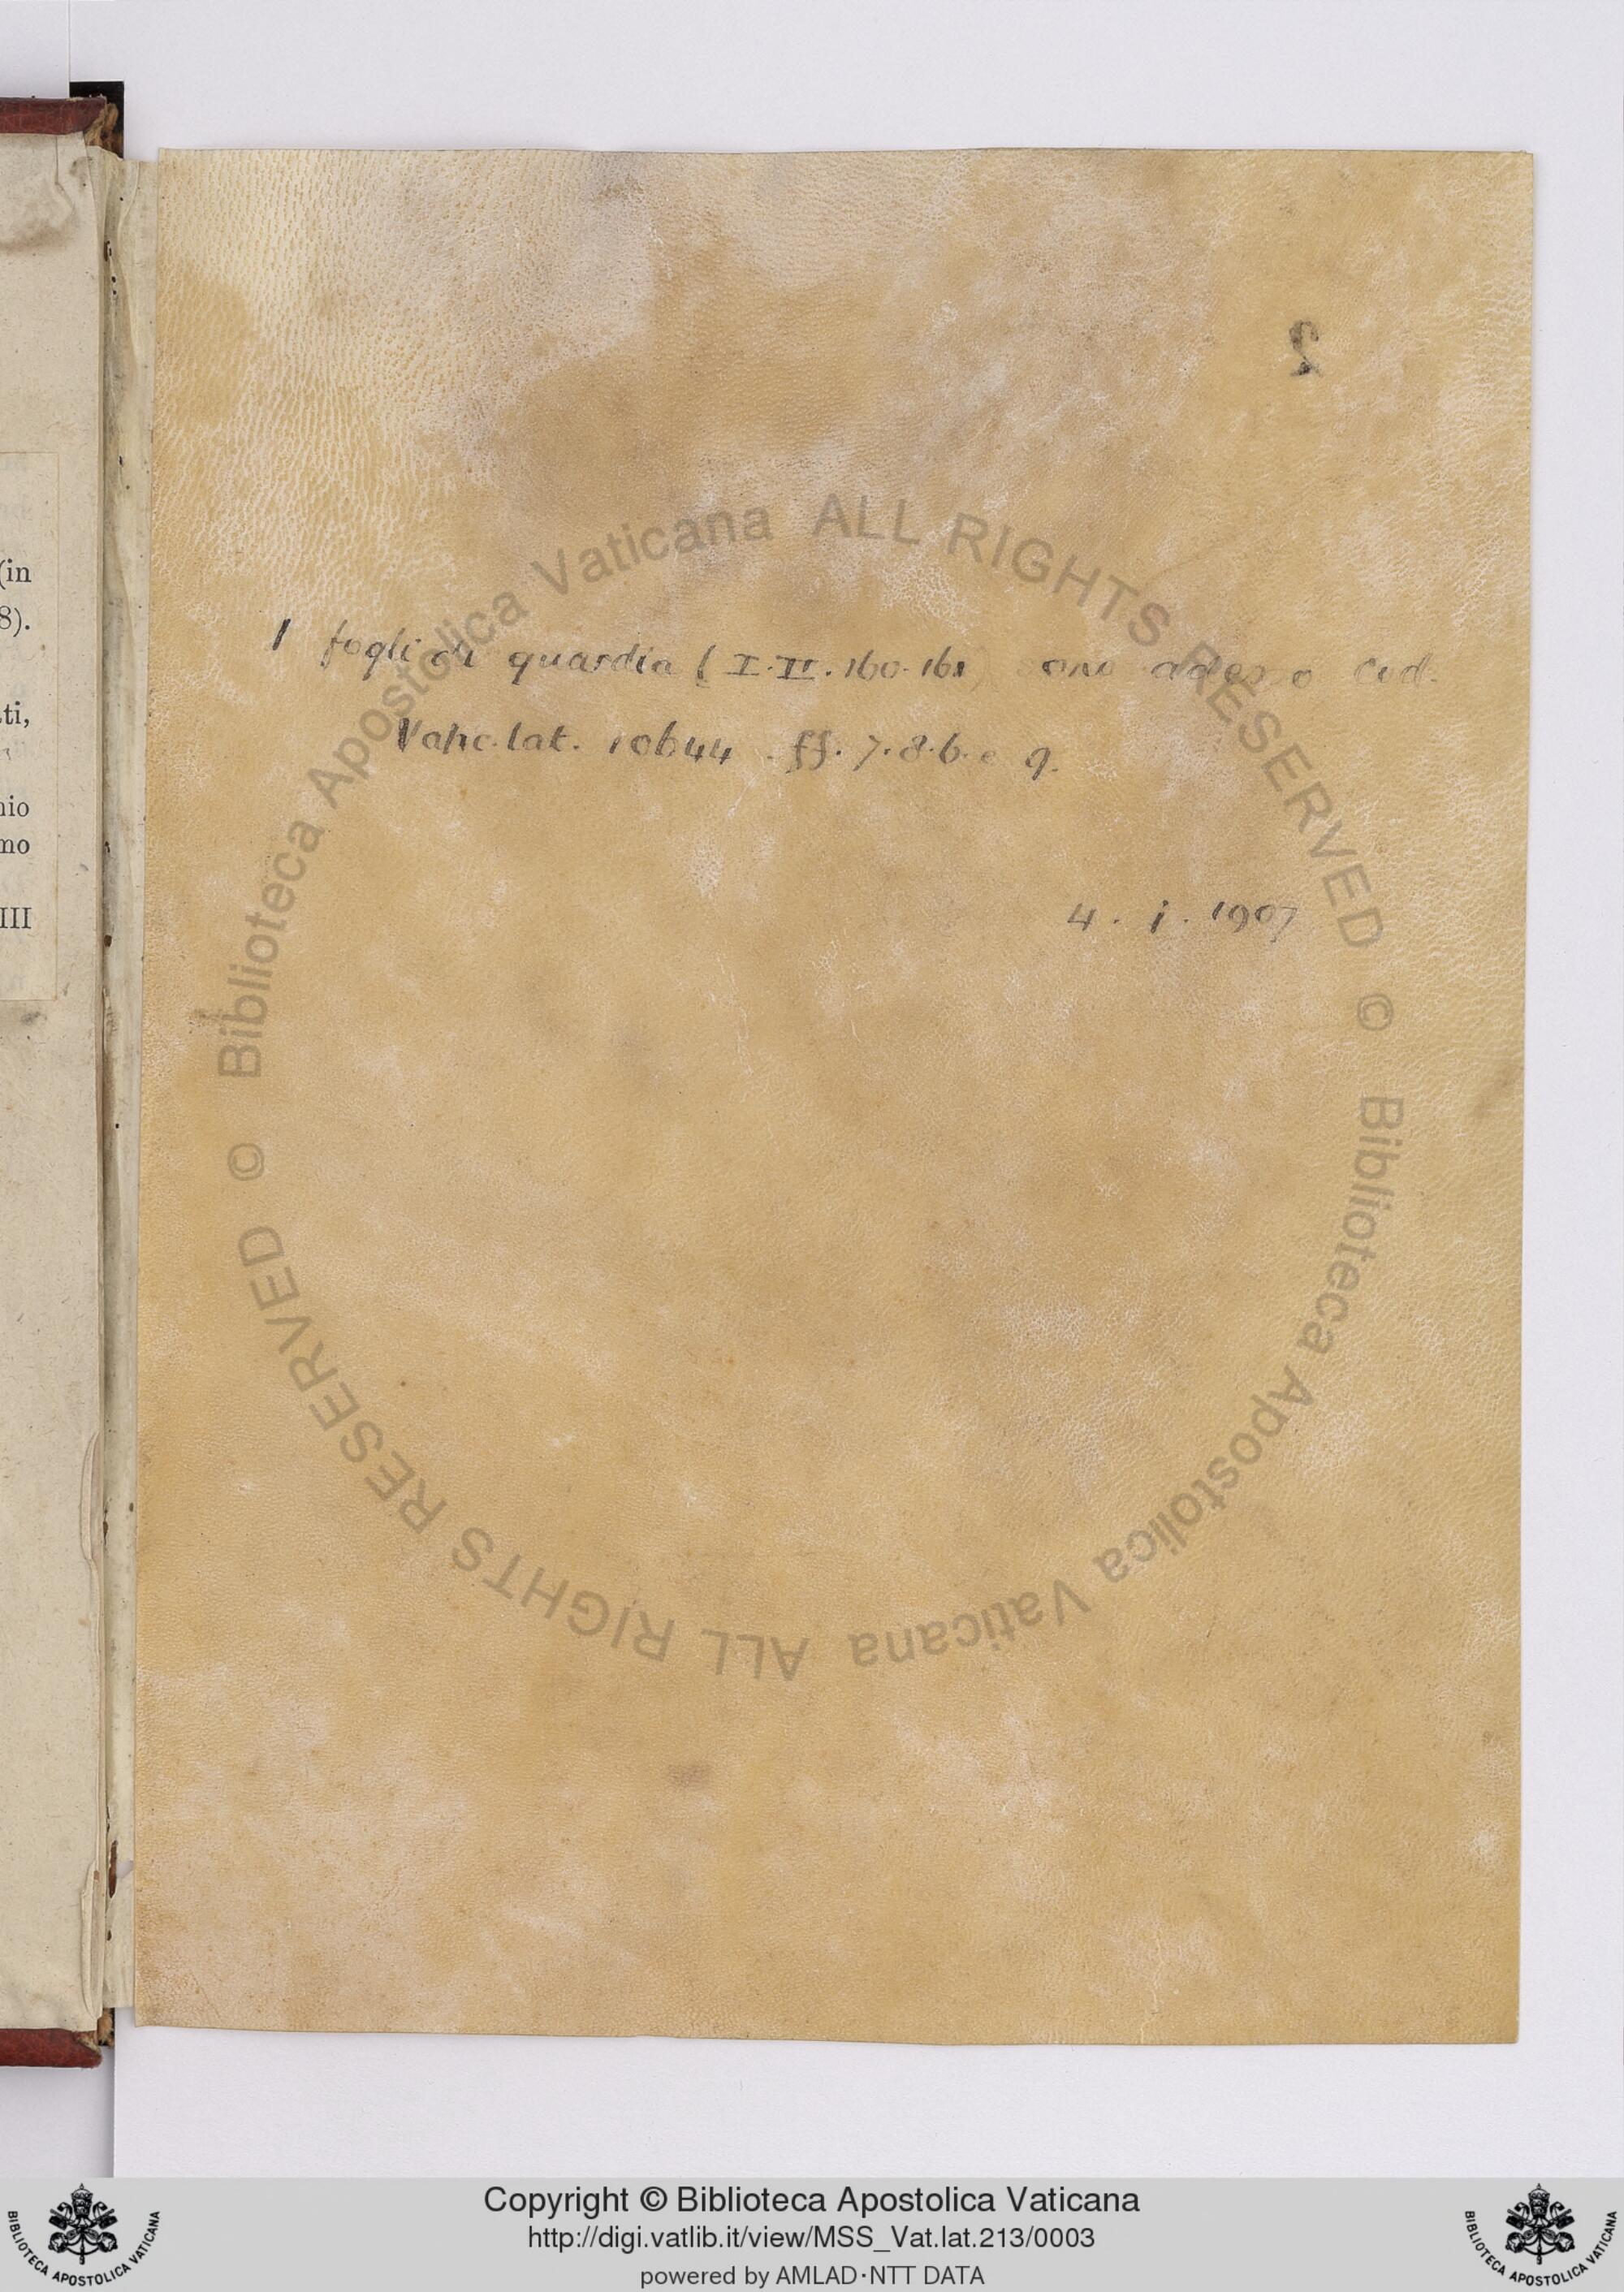 (in
8).
ti,
nio
mo
III
I fogli di quardia (I. II. 160. 161) sono adesso Cod.
Vatic. lat. 10644. ff. 7. 8. 6. e 9.
4. i. 1907
© Biblioteca Apostolica Vaticana ALL RIGHTS RESERVED
© Biblioteca Apostolica Vaticana ALL RIGHTS RESERVED
Copyright © Biblioteca Apostolica Vaticana
http://digi.vatlib.it/view/MSS_Vat.lat.213/0003
powered by AMLAD·NTT DATA
BIBLIOTECA APOSTOLICA VATICANA
BIBLIOTECA APOSTOLICA VATICANA